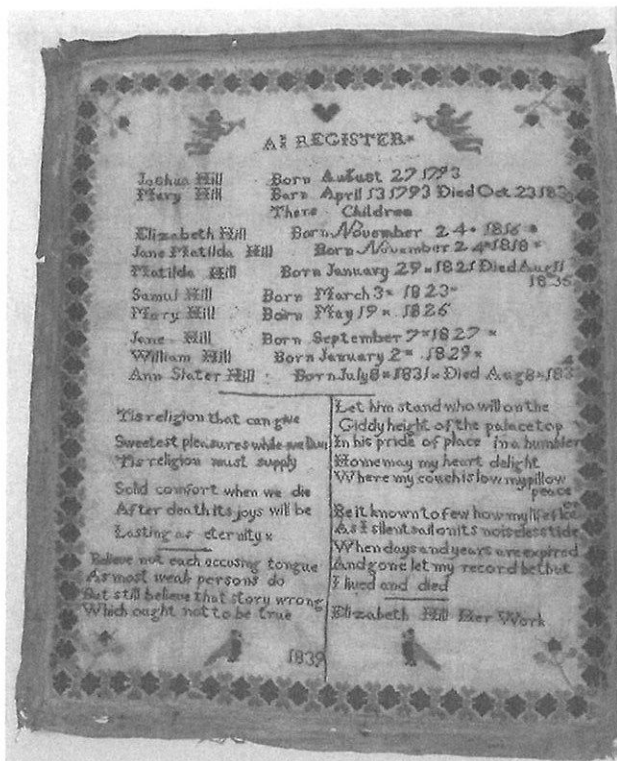 A REGISTER
Joshua Hill Born August 27 1793
Mary Hill Born April 13 1793 Died Oct 23
There Children
Elizabeth Hill Born November 24 1816
Jane Matilda Hill Born November 24 1818
Matilda Hill Born January 29 1821 Died Aug 11
1835
Samul Hill Born March 3 1823
Mary Hill Born May 19 1826
Jane Hill Born September 7 1827
William Hill Born January 2 1829
Ann Slater Hill Born July 8 1831 Died Aug 8
'Tis religion that can give
Sweetest pleasures while we live
'Tis religion must supply
Solid comfort when we die
After death its joys will be
Lasting as eternity
Believe not each accusing tongue
As most weak persons do
But still believe that story wrong
Which ought not to be true
1839
Let him stand who will on the
Giddy height of the palace top
In his pride of place in a humbler
Home may my heart delight
Where my couch is low my pillow
peace
Be it known to few how my life
As I silent sail on its noiseless tide
When days and years are expired
And gone let my record be that
I lived and died
Elizabeth Hill Her Work